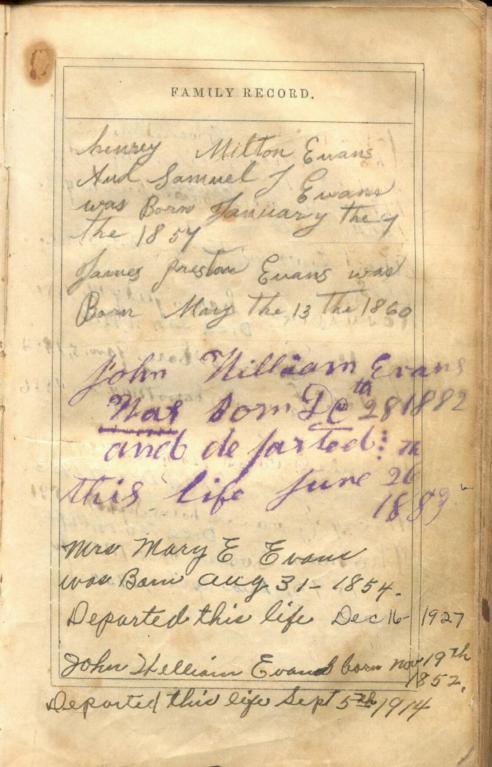 FAMILY RECORD.
henrey Milton Evans
And Samuel J Evans
was Born January the 9
the 1857
James preston Evans was
Born May the 13 the 1860
John William Evans
Was born De 28th 1882
and departed:
this life June 26 Th
1883
Mrs Mary E Evans
was Born Aug 31 - 1854.
Departed this life Dec 16 - 1927
John William Evans born nov 19th
1852.
Departed this life Sept 5th 1914